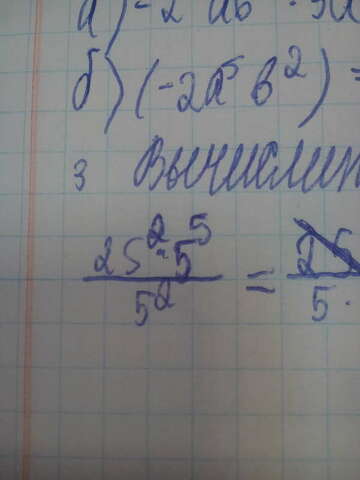 а) -2 ав · 5а
б) (-2а⁵ в²) =
3 Вычислит
25² · 5⁵ / 5² = 25 / 5 ·